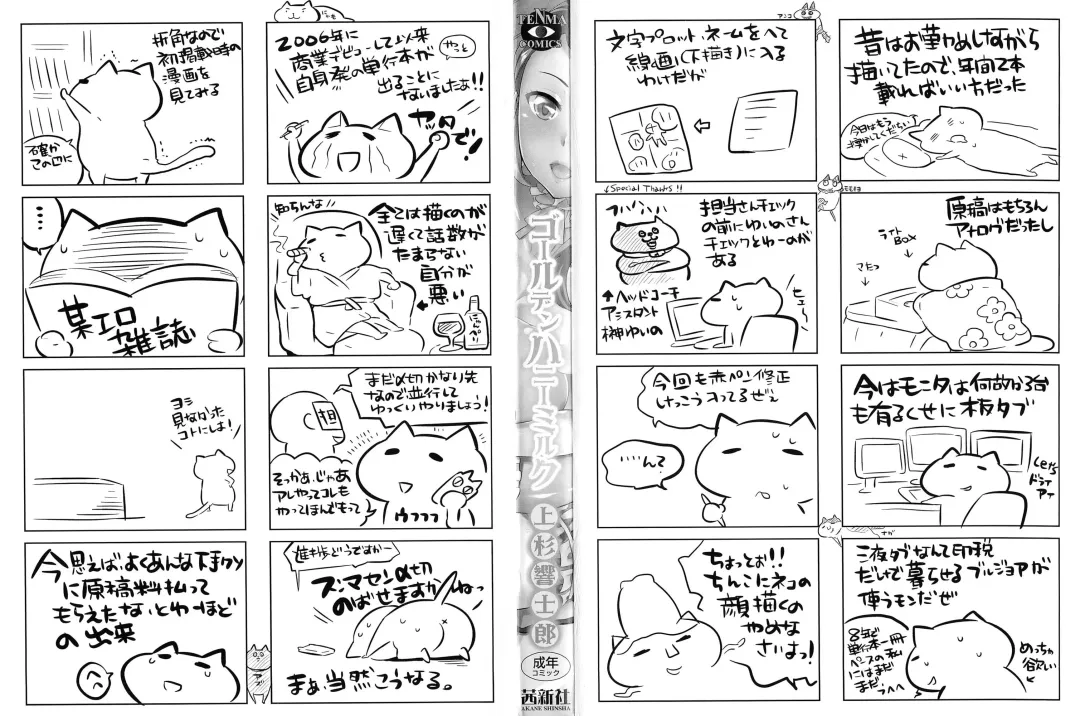 昔はお勤めしながら
描いてたので、年間2本
載ればいい方だった
今日はもう
原稿はもちろん
アナログだったし
ライト
BOX
こたつ
今はモニタは何故か3台
も有るくせに板タブ
Let's
ドライ
アイ
ナガ
液タブなんて印税
だけで暮らせるブルジョアが
使うモンだぜ
めっちゃ
欲しい
8年で
単行本一冊
ペースの私
にはまだ
まだ
アンコ
文字プロット、ネームをへて
線画(下描き)に入る
わけだが
↓Special Thanks!!
担当さんチェック
の前にゆいのさん
チェックとゆーのが
ある
↑ヘッドコーチ
アシスタント
榊ゆいの
今回も赤ペン修正
けっこう入ってるぜぇ
……んて
ちょっとぉ!!
ちんこにネコの
顔描くの
やめな
さいよっ!
TENMA
COMICS
ゴールデンハニーミルク
上杉響士郎
成年
コミック
茜新社
AKANE SHINSHA
2006年に
商業デビューして以来
自身発の単行本が
出ることに
なりましたぁ!!
やっと
ヤッタ
で!
知らんな
全ては描くのが
遅くて話数が
たまらない
自分が
悪い
まだ〆切かなり先
なので並行して
ゆっくりやりましょう!
担
そっかぁ、じゃあ
アレやってコレも
やってほんでもって
ウフフフ
進捗どうですかー
ズ・マセン〆切
のばせますかねっ
まあ、当然こうなる。
折角なので
初掲載時の
漫画を
見てみる
確か
この辺に
…
某エロ
雑誌
ヨシ
見なかった
コトにしよ!
今思えば、よくあんな下手クソ
に原稿料払って
もらえたなぁとゆーほど
の出来
へへ
アズ